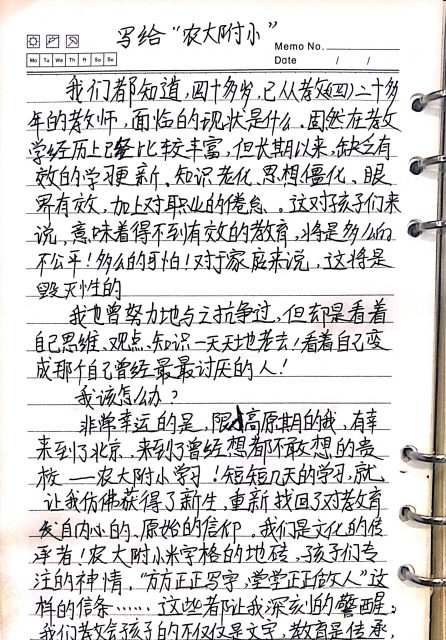 写给“农大附小”
Memo No.
Mo Tu We Th Fr Sa Su
Date / /
我们都知道,四十多岁,已从教(四)二十多
年的教师,面临的现状是什么。固然在教
学经历上已经比较丰富,但长期以来,缺乏有
效的学习更新、知识老化、思想僵化、眼
界有效,加上对职业的倦怠。这对孩子们来
说,意味着得不到有效的教育,将是多么的
不公平!多么的可怕!对于家庭来说,这将是
毁灭性的
我也曾努力地与之抗争过,但却是看着
自己思维、观点、知识一天天地老去!看着自己变
成那个自己曾经最最讨厌的人!
我该怎么办?
非常幸运的是,限高原期的我,有幸
来到了北京,来到了曾经想都不敢想的贵
校——农大附小学习!短短几天的学习,就
让我仿佛获得了新生,重新找回了对教育
发自内心的、原始的信仰。我们是文化的传
承者!农大附小米字格的地砖,孩子们专
注的神情,“方方正正写字,堂堂正正做人”这
样的信条……这些都让我深刻的警醒:
我们教给孩子的不仅仅是文字,教育是传承,